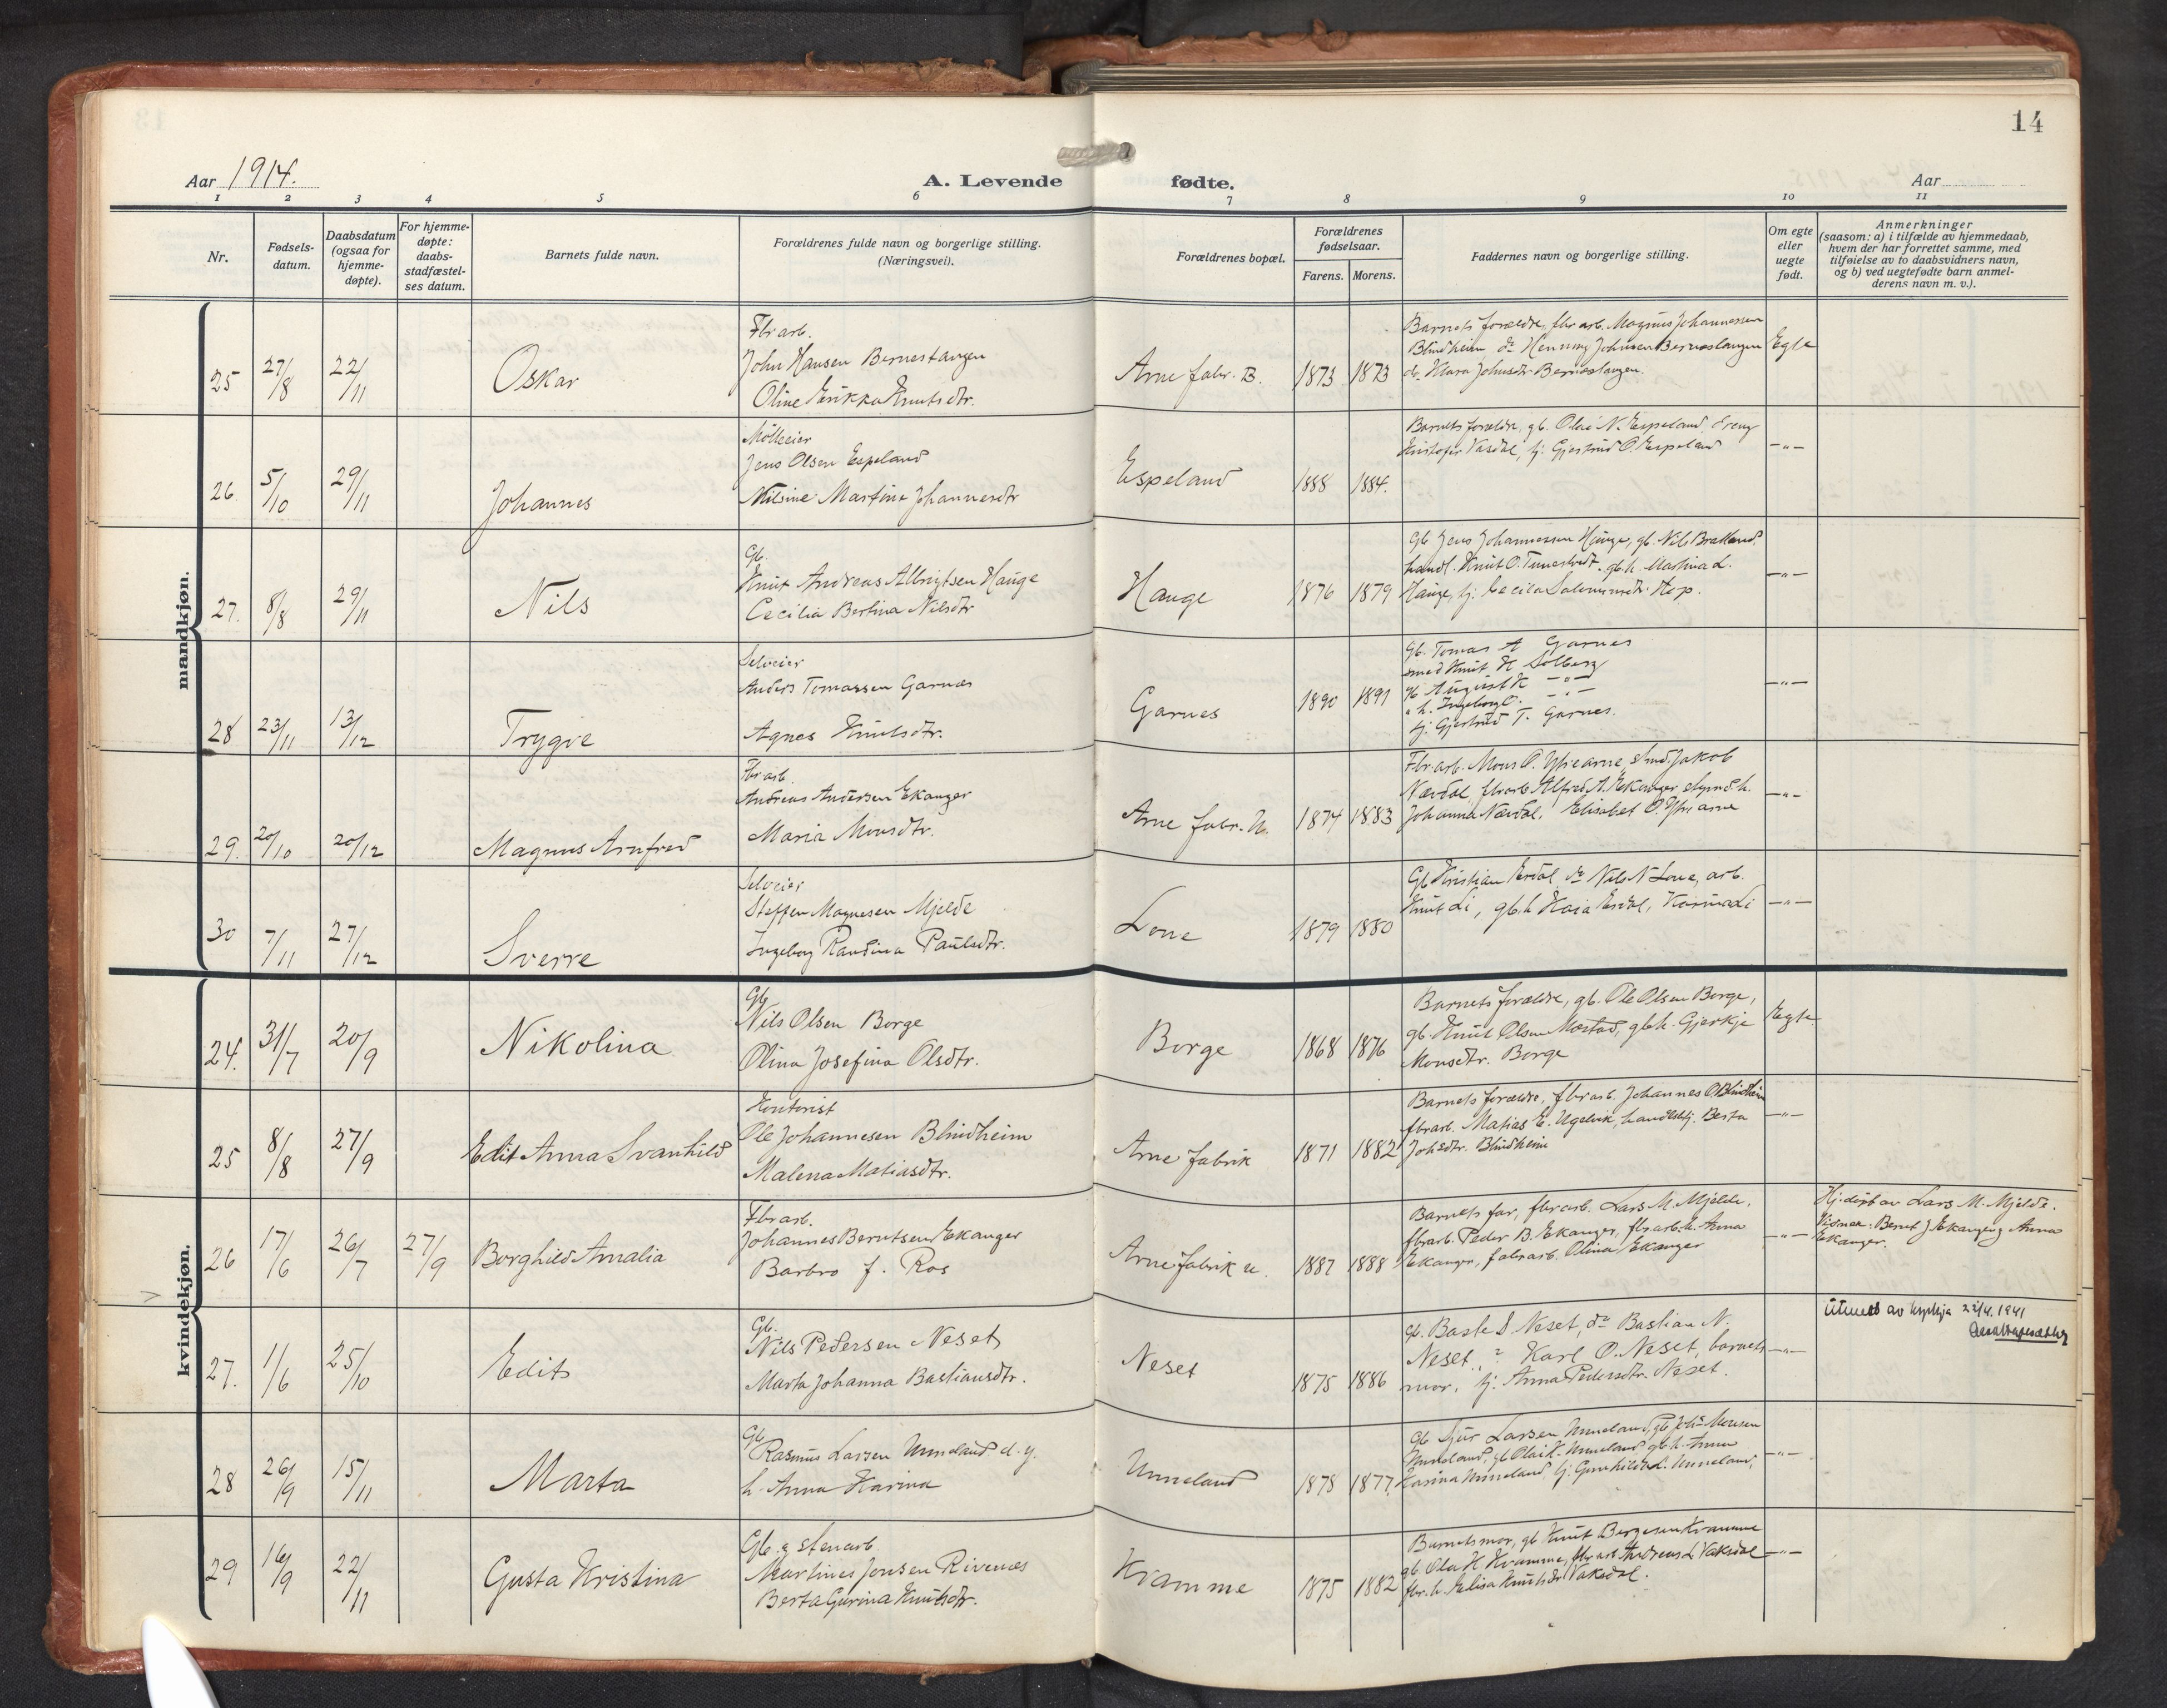 14
Aar 1914.
A. Levende fødte.
Aar
1 2 3 4 5 6 7 8 9 10 11
Nr.
Fødsels-
datum.
Daabsdatum
(ogsaa for
hjemme-
døpte).
For hjemme-
døpte:
daabs-
stadfæstel-
ses datum.
Barnets fulde navn.
Forældrenes fulde navn og borgerlige stilling.
(Næringsvei).
Forældrenes bopæl.
Forældrenes
fødselsaar.
Farens. Morens.
Faddernes navn og borgerlige stilling.
Om egte
eller
uegte
født.
Anmerkninger
(saasom: a) i tilfælde av hjemmedaab,
hvem der har forrettet samme, med
tilføielse av to daabsvidners navn,
og b) ved uegtefødte barn anmel-
derens navn m. v.).
mandkjøn.
25 27/8 22/11 Oskar
Fbrarb.
John Hansen Bernestangen
Oline Erikka Knutsdtr.
Arne fabr. B. 1873 1873
Barnets forældre, fbrarb. Magnus Johannessen
Blindheim, do Henning Johnsen Bernestangen
do. Klara Johnsdtr. Bernestangen.
Egte
26 5/10 29/11 Johannes
Mölleeier
Jens Olsen Espeland
Nilsine Martine Johannesdtr
Espeland 1888 1884.
Barnets forældre, gb. Olai N. Espeland, dreng
Kristofer Vasdal, pj. Gjertrud O. Espeland
—"—
27. 8/8 29/11 Nils
Gb.
Knut Andreas Albrigtsen Hauge
Cecilia Bertina Nilsdtr
Hauge 1876 1879
Gb Jens Johannessen Hauge, gb. Nils Bratland.
handl. Knut O. Tunestvedt. gb.h. Martina L.
Hauge, pj. Cecilia Salomonsdtr. Hop.
—"—
28 23/11 13/12 Trygve
Selveier
Anders Tomassen Garnes
Agnes Knutsdtr.
Garnes 1890 1891
Gb. Tomas A Garnes
smed Knut K Solberg
August K —"—
" h. Ingeborg O. —"—
pj. Gjertrud T. Garnes.
—"—
29. 20/10 20/12 Magnus Arnfred
Fbrarb.
Andreas Andersen Ekanger
Maria Monsdtr.
Arne fabr. U. 1874 1883
Fbr.arb. Mons O. Ytrearne, Jakob
Nævdal, fbrarb Alfred A. Ekanger
Johanna Nævdal, Elisabet O. Ytrearne
—"—
30 7/11 27/12 Sverre
Selveier
Steffen Magnesen Mjelde
Ingeborg Randina Paulsdtr.
Lone 1879 1880
Gb Kristian Erdal, do Nils N Lone, arb.
Knut Li, gb.h Kaia Erdal, Karina Li
—"—
kvindekjøn.
24. 31/7 20/9 Nikolina
Gb
Nils Olsen Borge
Olina Josefina Olsdtr.
Borge 1868 1876
Barnets forældre, gb. Ole Olsen Borge,
gb. Knut Olsen Mæstad, gb.h. Gjertje
Monsdtr. Borge
Egte
25 8/8 27/9 Edit Anna Svanhild
Kontorist
Ole Johannesen Blindheim
Malena Matiasdtr.
Arne fabrik 1871 1882
Barnets forældre, fbrarb. Johannes O. Blindheim
fbrarb. Matias E. Ugelvik, handelsbtj. Berta
Johsdtr. Blindheim
—"—
26 17/6 26/7 27/9 Borghild Amalia
Fbrarb.
Johannes Berntsen Ekanger
Barbro f. Ros
Arne fabrik u. 1887 1888
Barnets far, fbrarb. Lars M. Mjelde,
fbrarb. Peder B. Ekanger, fbrarb.h. Anna
Ekanger, fabrarb. Olina Ekanger
—"—
Hj.døpt av Lars M. Mjelde.
Vidner: Bernt J Ekanger og Anna
Ekanger.
27. 1/6 25/10 Edit
Gb.
Nils Pedersen Neset
Marta Johanna Bastiansdtr.
Neset 1875 1886
gb. Basle S Neset, do Bastian N.
Neset, " Karl O. Neset, barnets
mor, pj. Anna Pedersdtr. Neset.
—"—
Utmeldt av kyrkja 22/4. 1941
28 26/9 15/11 Marta
Gb
Rasmus Larsen Unneland d. y.
h. Anna Karina
Unneland 1878 1877.
gb Sjur Larsen Unneland, gb Johs Monsen
Unneland, gb Olai K. Unneland gb h. Anna
Karina Unneland, pj. Gunhilda L. Unneland,
—"—
29 16/9 22/11 Gusta Kristina
Gb. & stenarb.
Martines Jensen Rivenes
Berta Gurina Knutsdtr.
Kramme 1875 1882
Barnets mor, gb Knut Børgesen Kramme
gb. Ola K Kramme, fbrarb Andreas L Vaksdal
fbr. h. Elisa Knutsdtr Vaksdal.
—"—